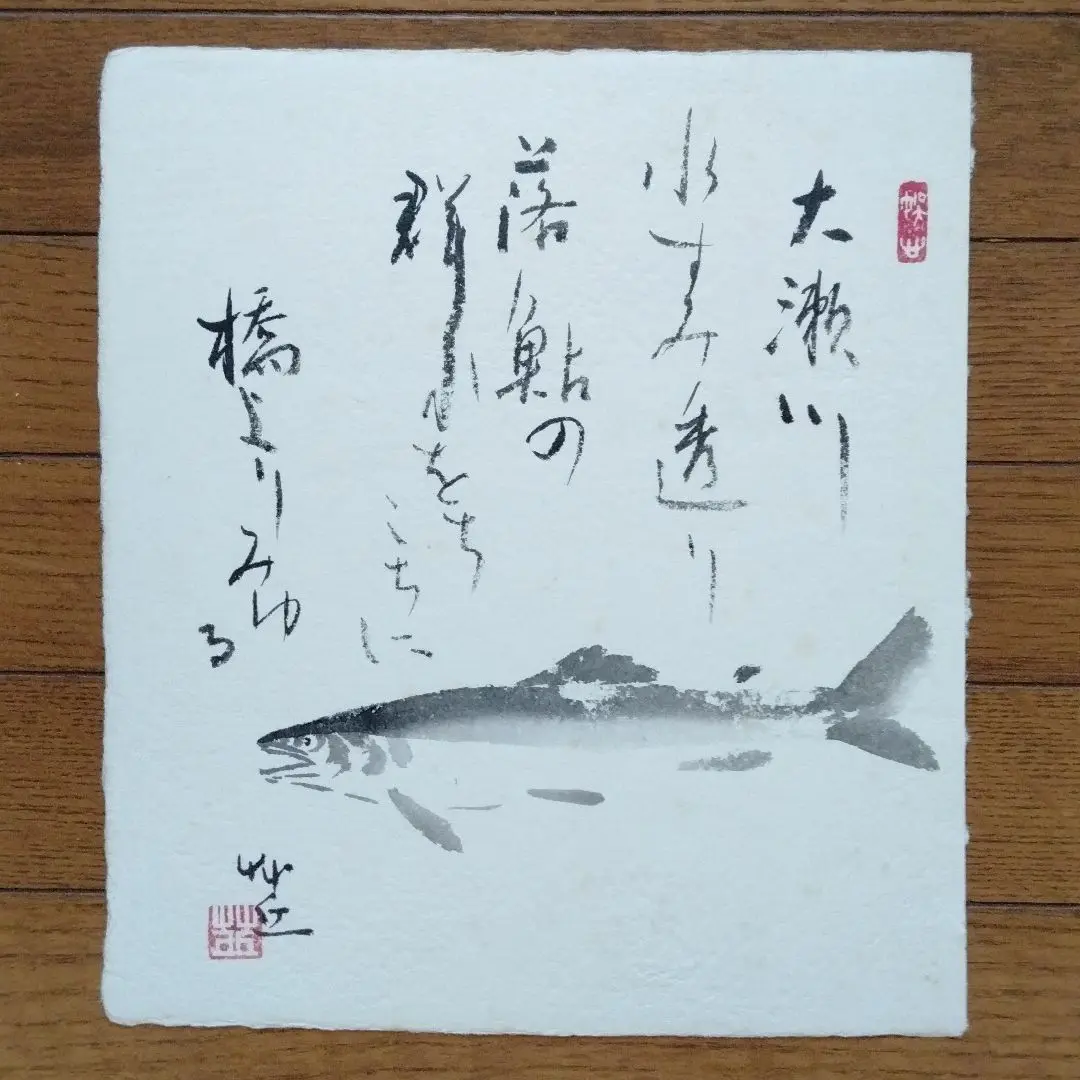 大瀬川
水すみ透り
落鮎の
群れをち
こちに
橋よりみゆ
る